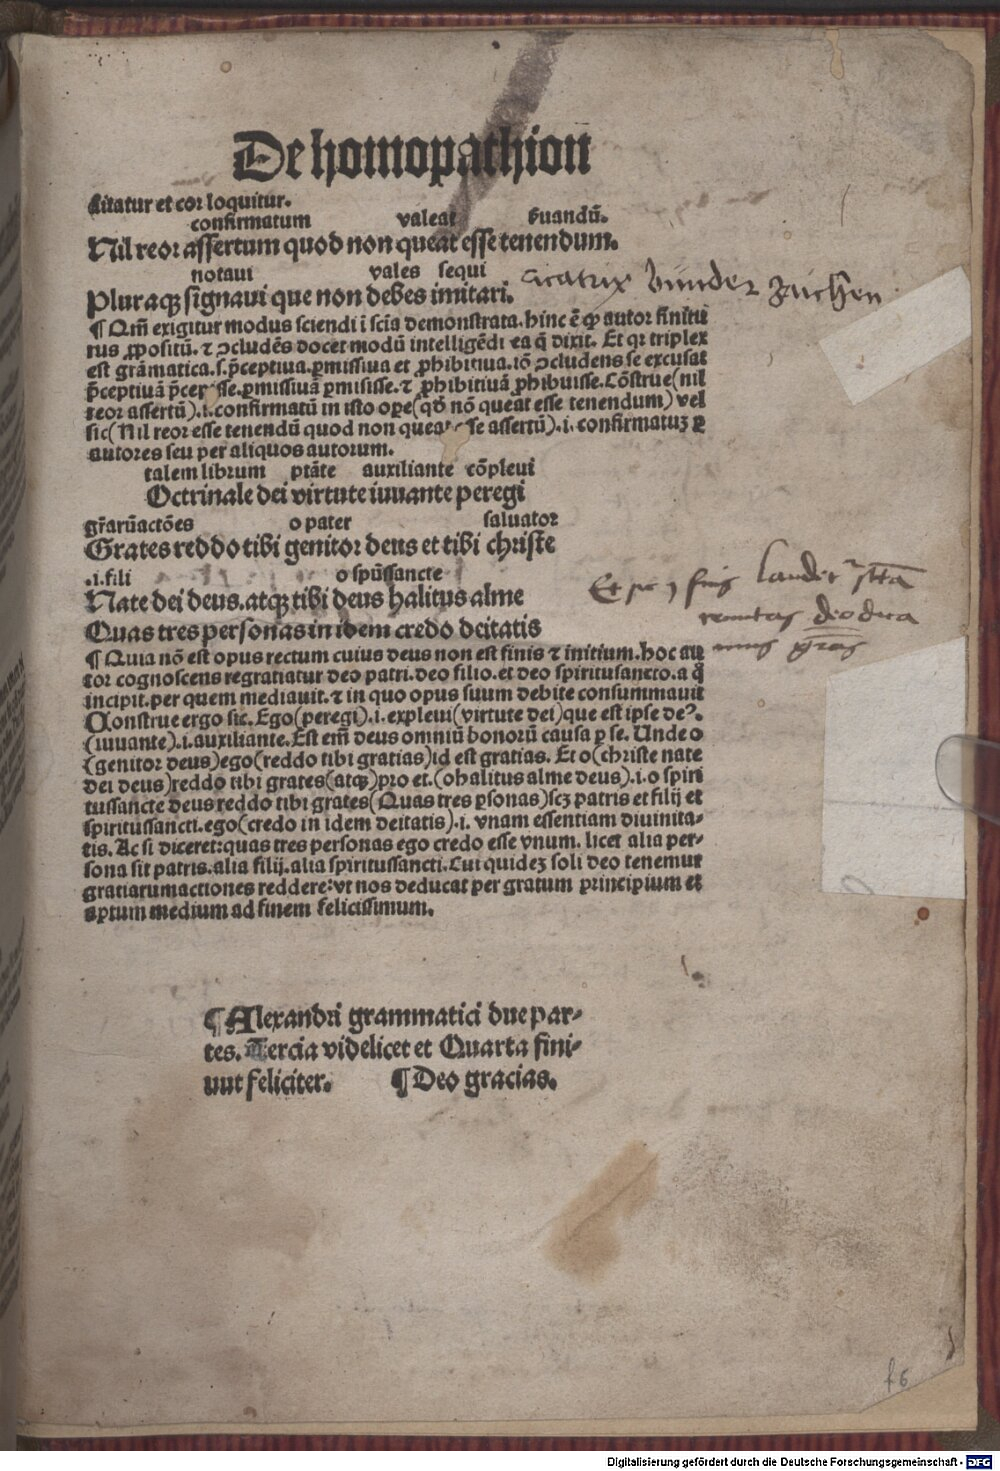 De homopathion
citatur et cor loquitur.
confirmatum valeat suandū.
Nil reor assertum quod non queat esse tenendum.
notaui vales sequi
Pluraqꝫ signaui que non debes imitari.
cicatrix
¶ Qm̄ exigitur modus sciendi ī scīa demonstrata. hinc ē ꝙ autor finitu
rus ꝓpositū. ⁊ ꝯcludēs docet modū intelligēdi ea q̄ dixit. Et qꝛ triplex
est grāmatica. s. p̄ceptiua. ꝑmissiua et ꝓhibitiua. iō ꝯcludens se excusat
p̄ceptiuā p̄cepisse. ꝑmissiuā ꝑmisisse. ⁊ ꝓhibitiuā ꝓhibuisse. Cōstrue (nil
reor assertū) .i. confirmatū in isto oꝑe (qd̄ nō queat esse tenendum) vel
sic (Nil reor esse tenendū quod non queat esse assertū) .i. confirmatuꝫ ꝑ
autores seu per aliquos autorum.
talem librum ptāte auxiliante cōpleui
Octrinale dei virtute iuuante peregi
gr̄arūactōes o pater saluator
Grates reddo tibi genitor deus et tibi christe
.i. fili o spūssancte
Nate dei deus. atqꝫ tibi deus halitus alme
Quas tres personas in idem credo deitatis
¶ Quia nō est opus rectum cuius deus non est finis ⁊ initium. hoc au
tor cognoscens regratiatur deo patri. deo filio. et deo spiritusancto. a q̄
incipit. per quem mediauit. ⁊ in quo opus suum debite consummauit
Construe ergo sic. Ego (peregi) .i. expleui (virtute dei) que est ipse deꝰ.
(iuuante) .i. auxiliante. Est em̄ deus omniū bonorū causa ꝑ se. Unde o
(genitor deus) ego (reddo tibi gratias) id est gratias. Et o (christe nate
dei deus) reddo tibi grates (atqꝫ) pro et. (o halitus alme deus) .i. o spiri
tussancte deus reddo tibi grates (Quas tres ꝑsonas) scꝫ patris et filij et
spiritussancti. ego (credo in idem deitatis) .i. vnam essentiam diuinita-
tis. Ac si diceret: quas tres personas ego credo esse vnum. licet alia per-
sona sit patris. alia filij. alia spiritussancti. Cui quideꝫ soli deo tenemur
gratiarumactiones reddere: vt nos deducat per gratum principium et
aptum medium ad finem felicissimum.
¶ Alexandri grammatici due par-
tes. Tercia videlicet et Quarta fini-
unt feliciter. ¶ Deo gracias.
f 6
Digitalisierung gefördert durch die Deutsche Forschungsgemeinschaft - DFG